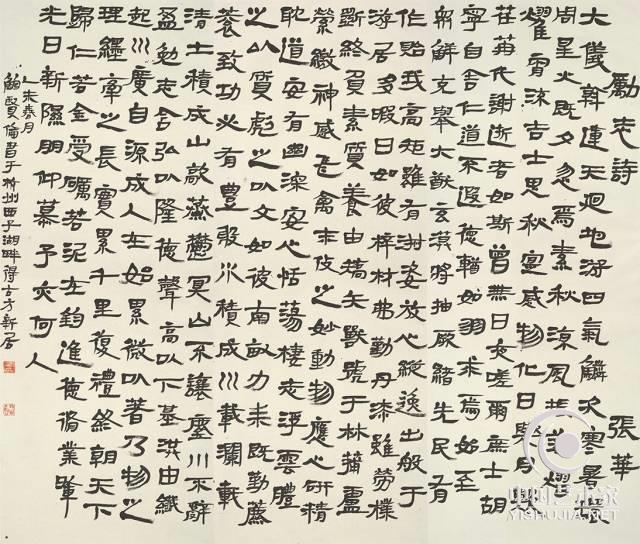 勵志詩 張華
大儀斡運天迴地游四氣鱗次寒暑環
周星火既夕忽焉素秋涼風振落熠
燿宵流吉士思秋寔感物化日與月與
荏苒代謝逝者如斯曾無日夜嗟爾庶士胡
寧自舍仁道不遐德輶如羽求焉始至
衆鮮克舉大猷玄漠將抽厥緒先民有
作貽我高矩雖有淑姿放心縱逸出般于
游居多暇日如彼梓材弗勤丹漆雖勞樸
斲終負素質養由矯矢獸號于林蒲盧
縈繳神感飛禽末伎之妙動物應心研精
耽道安有幽深安心恬蕩棲志浮雲體
之以質彪之以文如彼南畝力耒既勤藨
蓘致功必有豐殷水積成川載瀾載
清土積成山歊蒸鬱冥山不讓塵川不辭
盈勉志含弘以隆德聲高以下基洪由纖
起川廣自源成人在始累微以著乃物之
理纆牽之長實累千里復禮終朝天下
歸仁若金受礪若泥在鈞進德脩業暉
光日新隰朋仰慕予亦何人
乙未春月
鮑賢倫書于杭州西子湖畔得古方新居
中国艺术家
YISHUJIA.NET